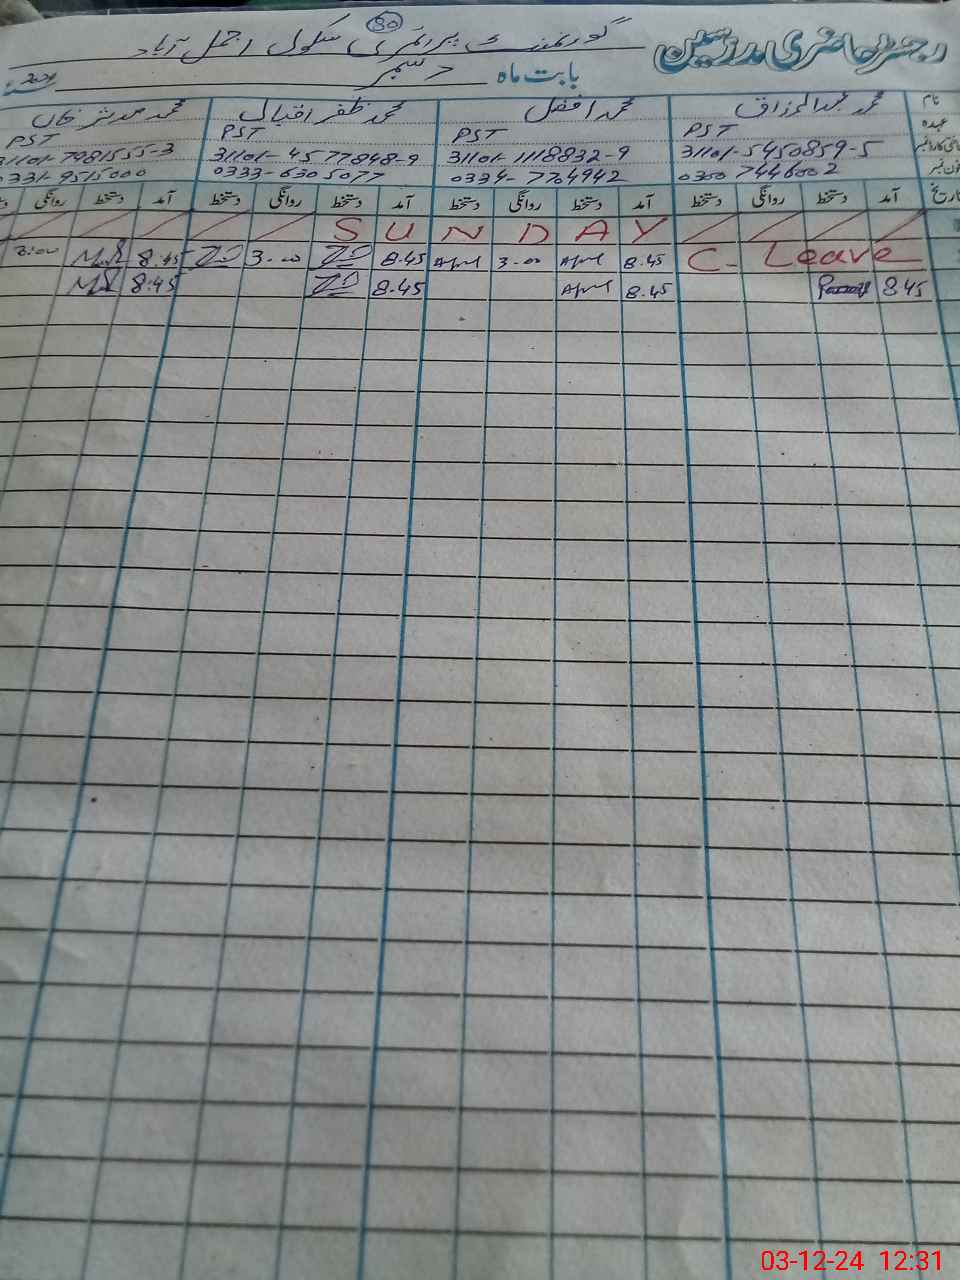 رجسٹر حاضری مدرسین
80
گورنمنٹ پرائمری سکول اجمل آباد
بابت ماہ دسمبر
نام محمد عبدالرزاق محمد افضل محمد ظفر اقبال محمد مدثر خان
عہدہ PST PST PST PST
31101-5450859-5 31101-1118832-9 31101-4577848-9 31101-7981555-3
0300 7446002 0334-7764942 0333-6305077 0331-9515000
تاریخ آمد دستخط روانگی دستخط آمد دستخط روانگی دستخط آمد دستخط روانگی دستخط آمد دستخط روانگی
SUNDAY
C. Leave 8.45 3.00 8.45 3.00 8.45 3.00
8 45 8.45 8.45 8.45
03-12-24 12:31